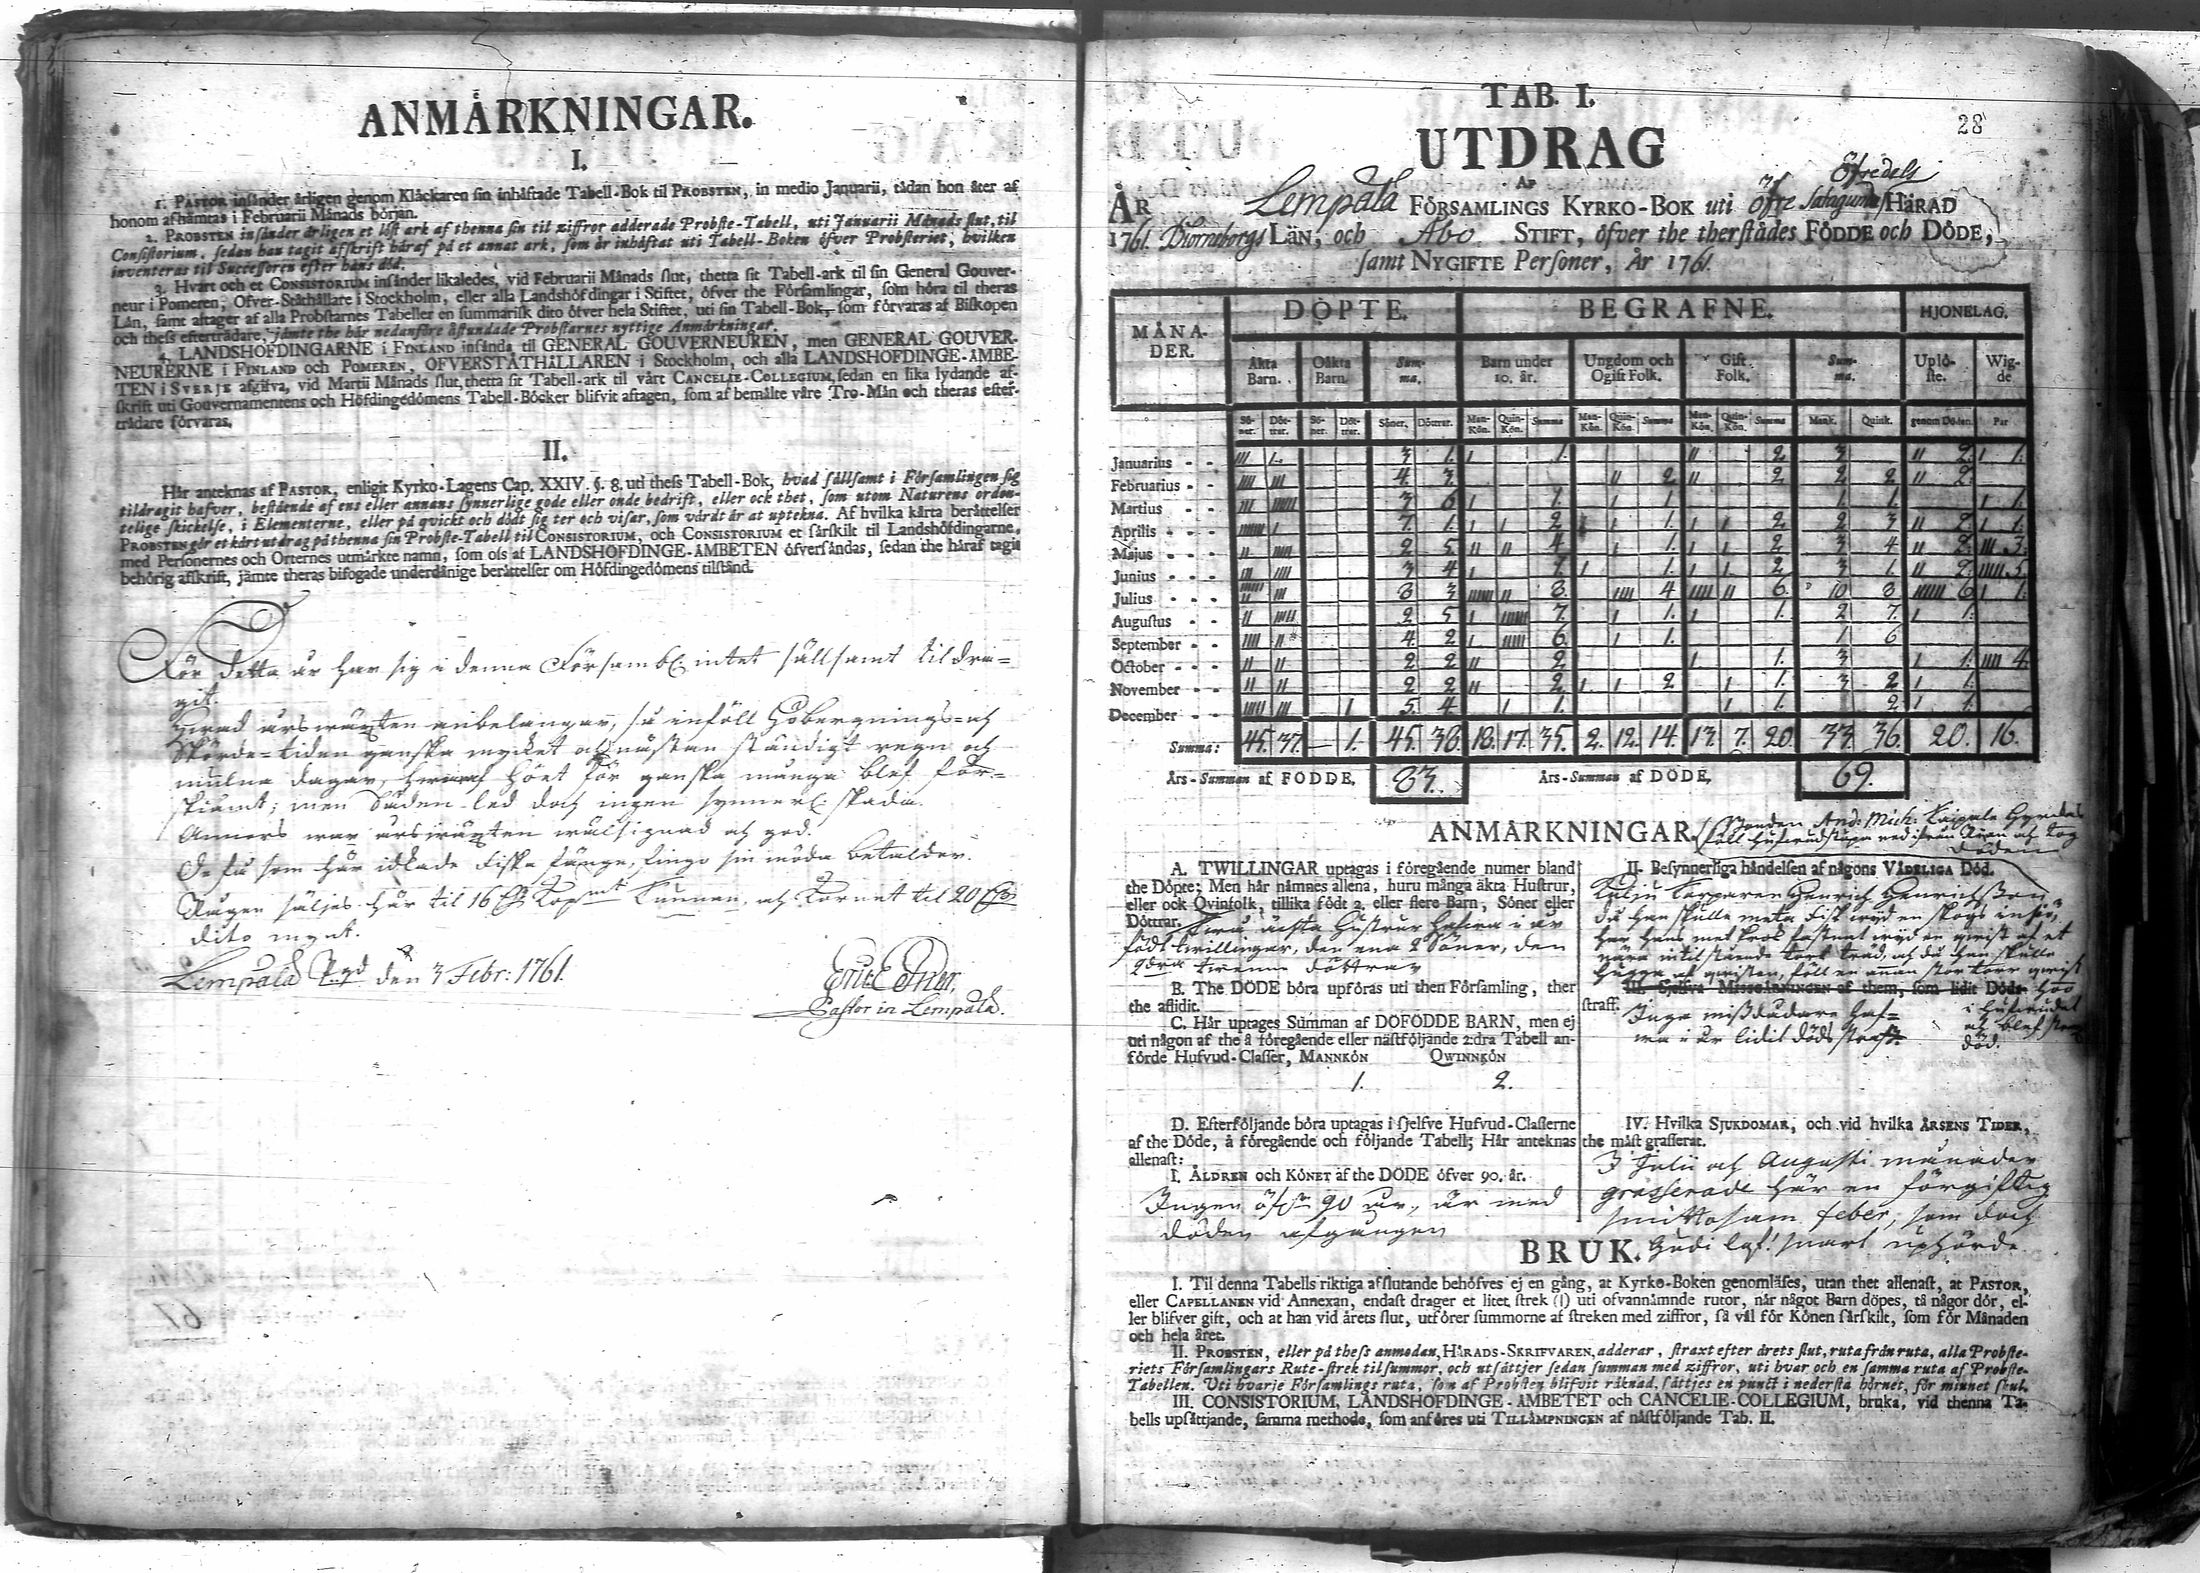 ANMÄRKNINGAR.
I.
1. PASTOR insänder årligen genom Klåckaren sin inhäftade Tabell-Bok til PROBSTEN, in medio Januarii, tådan hon åter af
honom afhämtas i Februarii Månads början.
2. PROBSTEN insänder årligen et löst ark af thenna sin til ziffror adderade Probste-Tabell, uti Januarii Månads slut, til
Consistorium, sedan han tagit afskrift häraf på et annat ark, som är inhäftat uti Tabell-Boken öfver Probsteriet, hvilken
inventeras til Successoren efter hans död.
3. Hvart och et CONSISTORIUM insänder likaledes, vid Februarii Månads slut, thetta sit Tabell-ark til sin General Gouver-
neur i Pomeren, Öfver-Ståthållare i Stockholm, eller alla Landshöfdingar i Stiftet, öfver the Församlingar, som höra til theras
Län, samt aftager af alla Probstarnes Tabeller en summarisk dito öfver hela Stiftet, uti sin Tabell-Bok, som förvaras af Biskopen
och thess efterträdare, jämte the här nedanföre åstundade Probstarnes nyttige Anmärkningar.
4. LANDSHÖFDINGARNE i FINLAND insända til GENERAL GOUVERNEUREN, men GENERAL GOUVER-
NEURERNE i FINLAND och POMEREN, ÖFVERSTÅTHÅLLAREN i Stockholm, och alla LANDSHÖFDINGE-ÄMBE-
TEN i SVERJE afgifva, vid Martii Månads slut, thetta sit Tabell-ark til vårt CANCELIE-COLLEGIUM, sedan en lika lydande af-
skrift uti Gouvernamentens och Höfdingedömens Tabell-Böcker blifvit aftagen, som af bemälte våre Tro-Män och theras efter-
trädare förvaras.
II.
Här anteknas af PASTOR, enligit Kyrko-Lagens Cap. XXIV. §. 8. uti thess Tabell-Bok, hvad sällsamt i Församlingen sig
tildragit hafver, bestående af ens eller annans synnerlige gode eller onde bedrift, eller ock thet, som utom Naturens orden-
telige skickelse, i Elementerne, eller på qvickt och dödt sig ter och visar, som värdt är at uptekna. Af hvilka kårta berättelser
PROBSTEN gör et kårt utdrag på thenna sin Probste-Tabell til CONSISTORIUM, och CONSISTORIUM et särskilt til Landshöfdingarne,
med Personernes och Orternes utmärkte namn, som oss af LANDSHÖFDINGE-ÄMBETEN öfversändas, sedan the häraf tagit
behörig afskrift, jämte theras bifogade underdånige berättelser om Höfdingedömens tilstånd.
För detta år har sig i denna Församl: intet sällsamt tildra-
git.
Hvad årswäxten anbelangar, så inföll Höbergnings- och
Skörde-tiden ganska mycket och nästan ständigt regn och
mulna dagar, hwaraf Höet för ganska många blef för-
skiämt; men Säden led doch ingen synnerl: skada.
Annors war årswäxten wälsignad och god.
De få som här idkade Fiske fånge, fingo sin möda betalder.
Rågen säljes här til 16 Kopmt Kannan, och Kornet til 20
dito mynt.
Lempälä den 3 Febr: 1761.
Pastor in Lempälä.
28
TAB. I.
UTDRAG
AF
Öfredels
ÅR Lempälä FÖRSAMLINGS KYRKO-BOK uti öfre Satagunda HÄRAD
1761. Biörneborgs LÄN, och Åbo STIFT, öfver the therstädes FÖDDE och DÖDE,
samt NYGIFTE Personer, År 1761.
MÅNA-DER. DÖPTE. BEGRAFNE. HJONELAG.
Äkta Barn. Oäkta Barn. Sum-ma. Barn under 10. år. Ungdom och Ogift Folk. Gift Folk. Sum-ma. Uplö-ste. Wig-de
Sö-ner. Döt-trar. Sö-ner. Döt-trar. Söner. Döttrar. Man-Kön. Quin-Kön. Summa Man-Kön. Quin-Kön. Summa Man-Kön. Quin-Kön. Summa Mank. Quink. genom Döden. Par
Januarius - - III I. 3 1. I 1. II 2 3 II 2. I 1.
Februarius - - IIII III 4. 3 II 2 II 2 2 2 II 2.
Martius - - 3 6 I 1. I 1. 1. 1. I 1.
Aprilis - - 7. 1. I I 2 I 1. I I 2 2 3 II 2. I 1.
Majus - - II 2 5 II II 4 I 1. I I 2 3 4 II 2. III 3.
Junius - - III IIII 3 4 I 1. I 1. I I 2 3 1. II 2. IIIII 5.
Julius - - III 8 3 IIIIII II 8. IIII 4 IIII II 6. 10 8 IIIIII 6 I 1.
Augustus - - II IIIII 2 5 I IIIIII 7. I 1. I 1. 2 7. I 1.
September - - IIII II 4 2 I IIIII 6. I 1. 1 6
October - - II II 2 2 II 2 I 1. 3 I 1. IIII 4.
November - - II II 2 2 II 2 I I 2 I 1. 3 2 I 1.
December - - IIIII III I 5. 4 I 1. I 1. 2 I 1.
Summa: 45. 37. — 1. 45. 38. 18. 17. 35. 2. 12. 14. 13. 7. 20. 33. 36. 20. 16.
Års-Summan af FÖDDE. 83. Års-Summan af DÖDE. 69.
ANMÄRKNINGAR.
Bonden And: Mich:
döden
A. TWILLINGAR uptagas i föregående numer bland
the Döpte; Men här nämnes allena, huru många äkta Hustrur,
eller ock Qvinfolk, tillika födt 2, eller flere Barn, Söner eller
Döttrar. Twå äckta Hustrur hafwa i år
födt twillingar, den ena 2 Söner, den
andra twenne döttrar
B. The DÖDE böra upföras uti then Församling, ther
the aflidit.
C. Här uptages Summan af DÖFÖDDE BARN, men ej
uti någon af the å föregående eller nästföljande 2:dra Tabell an-
förde Hufvud-Classer, MANNKÖN QWINNKÖN
1. 2.
D. Efterföljande böra uptagas i sjelfve Hufvud-Classerne
af the Döde, å föregående och följande Tabell; Här anteknas
allenast:
I. ÅLDREN och KÖNET af the DÖDE öfver 90. år.
Ingen öfwer 90 år, är med
döden afgången
II. Besynnerliga händelsen af någons VÅDELIGA Död.
Henrich Henrichsson
då han skulle meta Fisk wid en skogs insiö,
III. Sjelfva MISSGÄRNINGEN of them, som lidit Döds-
straff. Inga missdådare haf-
wa i år lidit dödsstraff.
i hufwudet
och blef straxt
död.
IV. Hvilka SJUKDOMAR, och vid hvilka ÅRSENS TIDER,
the mäst grasserat.
I Julii och Augusti månader
grasserade här en förgiftig
smittosam feber, som doch
Gudi lof! snart uphörde
BRUK.
I. Til denna Tabells riktiga afslutande behöfves ej en gång, at Kyrko-Boken genomläses, utan thet allenast, at PASTOR,
eller CAPELLANEN vid Annexan, endast drager et litet strek (|) uti ofvannämnde rutor, när något Barn döpes, tå någor dör, el-
ler blifver gift, och at han vid årets slut, utförer summorne af streken med ziffror, så väl för Könen särskilt, som för Månaden
och hela året.
II. PROBSTEN, eller på thess anmodan, HÄRADS-SKRIFVAREN, adderar, straxt efter årets slut, ruta från ruta, alla Probste-
riets Församlingars Rute-strek til summor, och utsättjer sedan summan med ziffror, uti hvar och en samma ruta af Probste-
Tabellen. Uti hvarje Församlings ruta, som af Probsten blifvit räknad, sättjes en punct i nedersta hörnet, för minnet skul.
III. CONSISTORIUM, LANDSHÖFDINGE-ÄMBETET och CANCELIE-COLLEGIUM, bruka, vid thenna Ta-
bells upsättjande, samma methode, som anföres uti TILLÄMPNINGEN af nästföljande Tab. II.